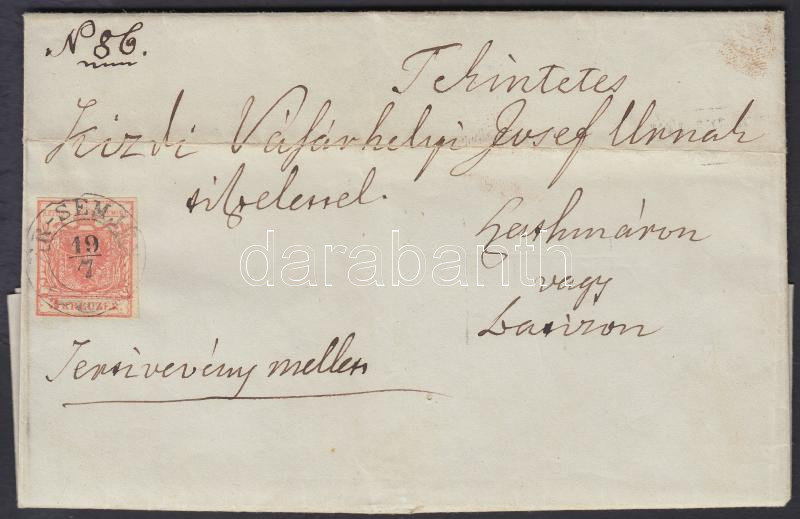 N 86.
Tekintetes
Kizdi Vásárhelyi Josef Urnak
tisztelettel.
Szathmáron
vagy
Térti vevény mellett
19
7
KREUZER
darabanth